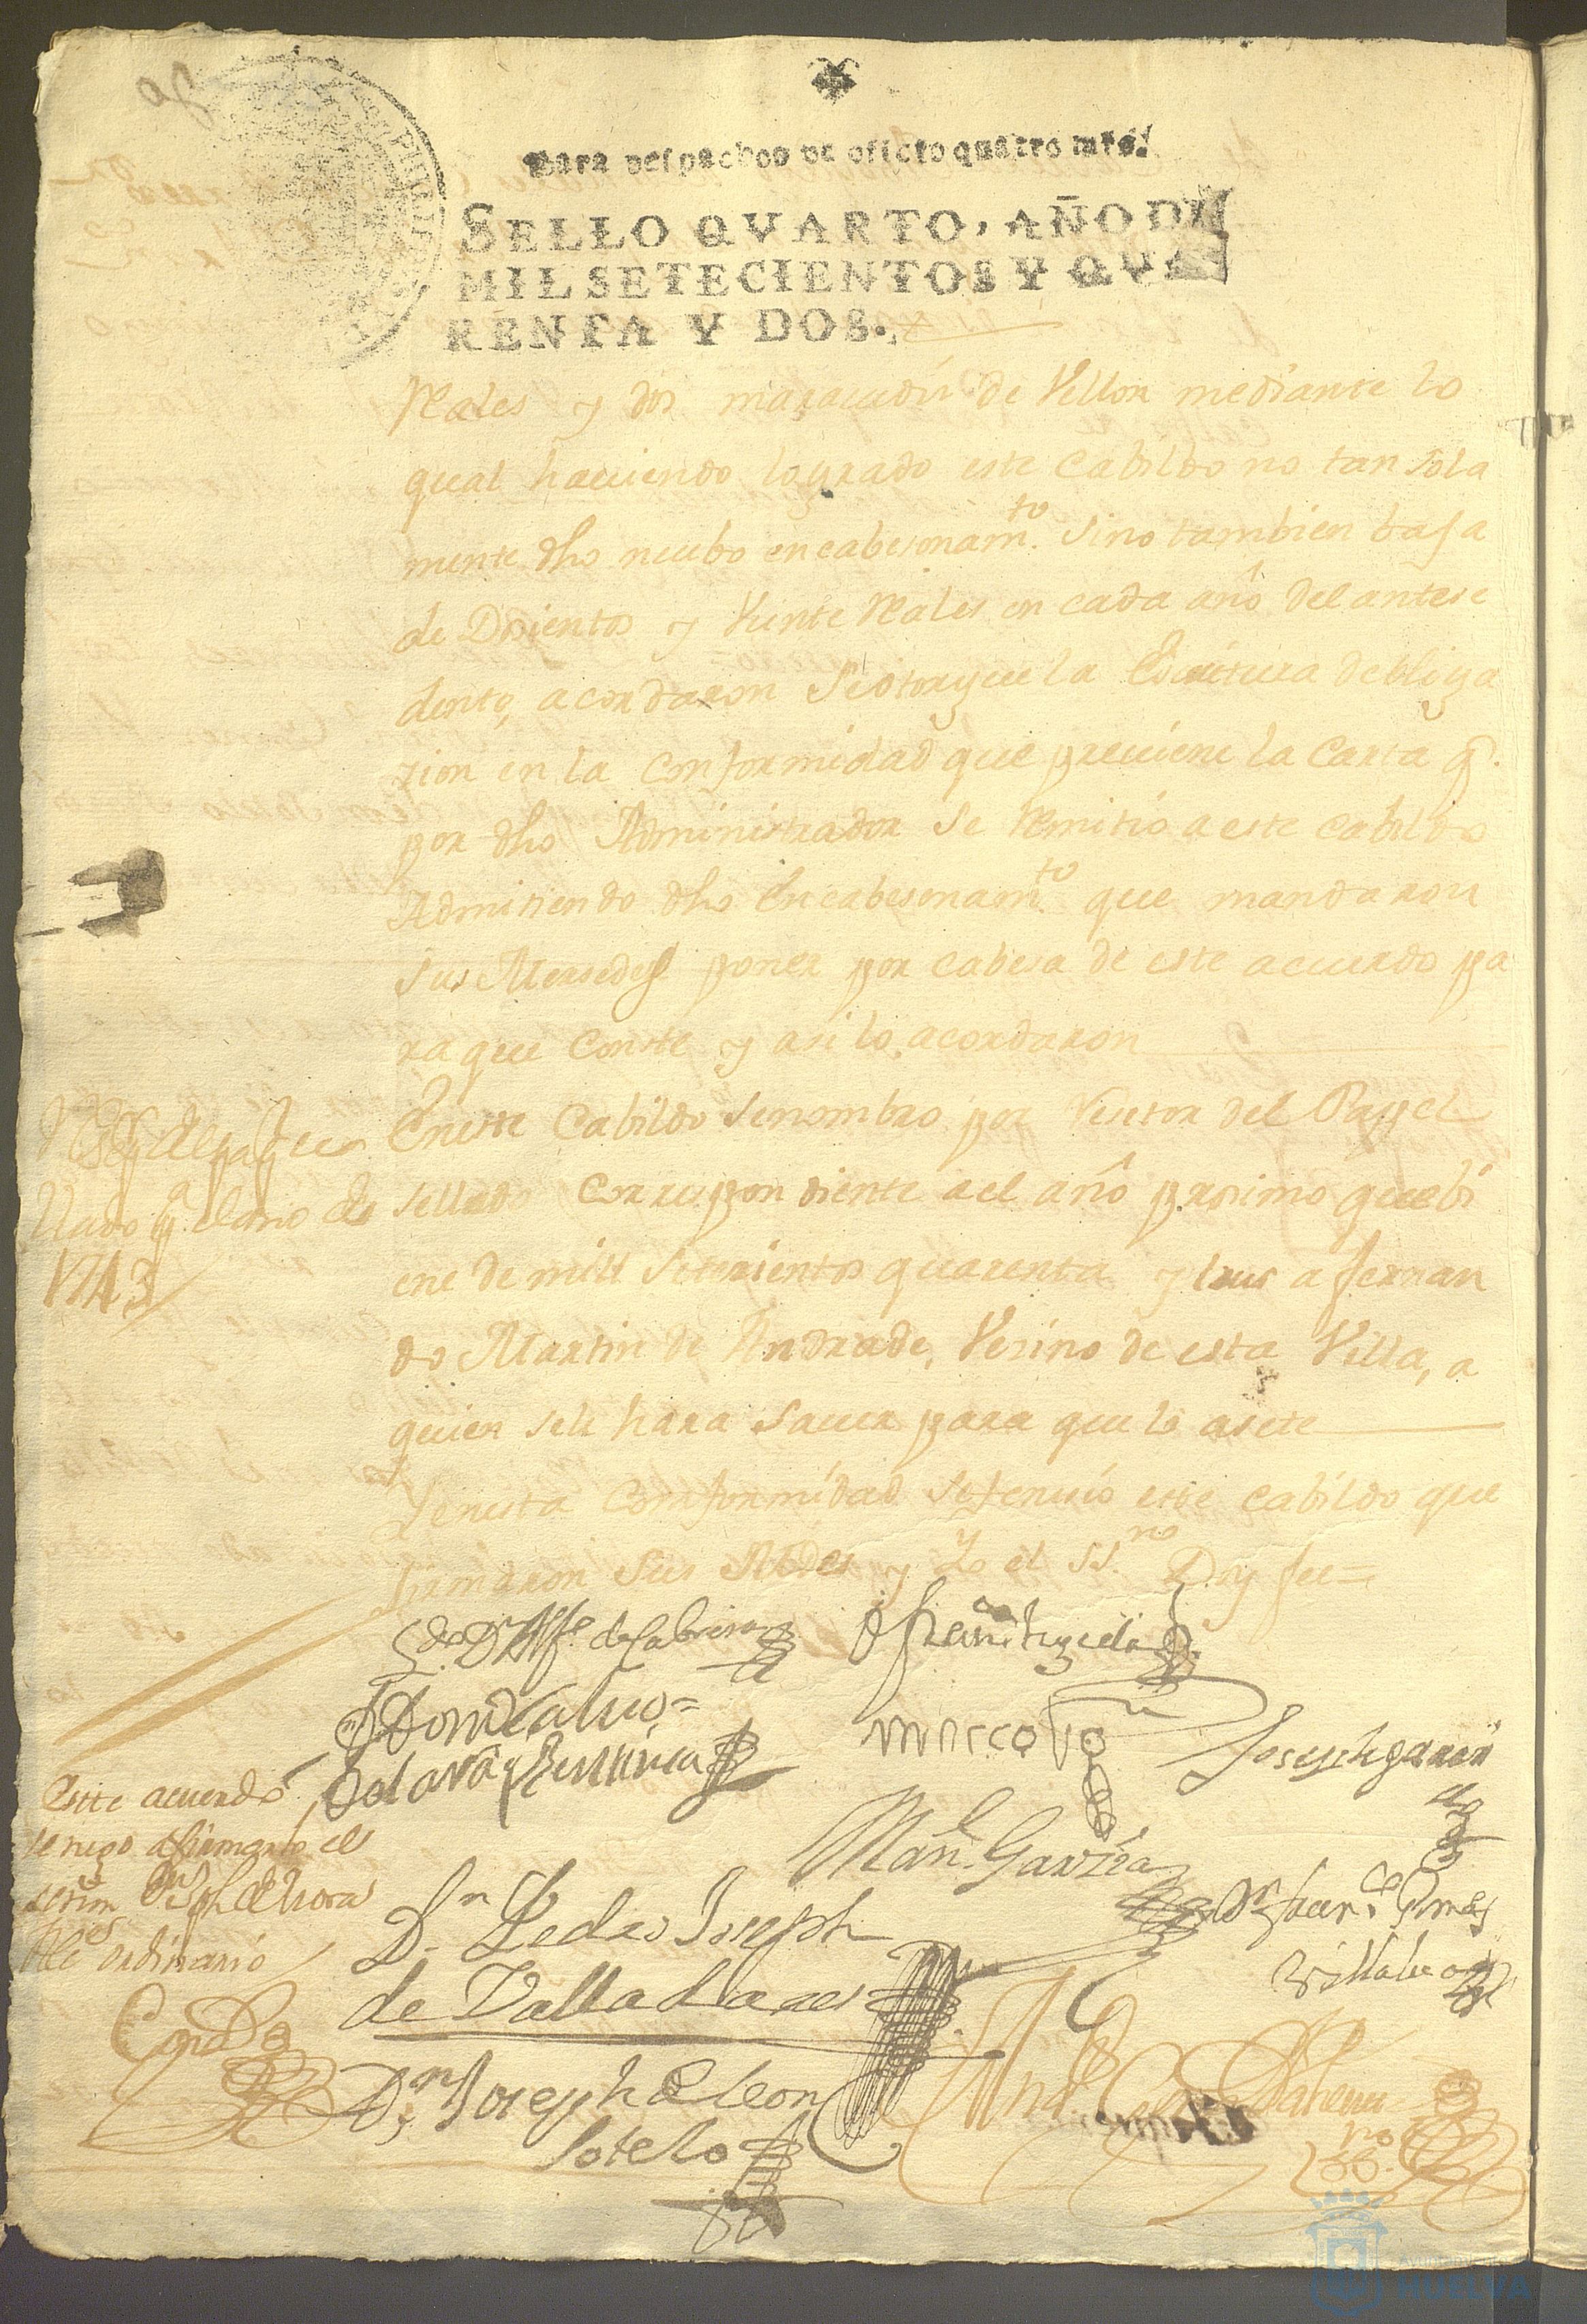 Para despachos de oficio quatro mrs.
SELLO QVARTO, AÑO DE
MIL SETECIENTOS Y QVA
RENTA Y DOS.
Reales y dos marauedis de Vellon mediante lo
qual hauiendo logrado este Cabildo no tan sola
mente dho nuebo encabesonamto. sino tambien baja
de Dosientos y Veinte Reales en cada año del antese
dente, acordaron se otorgue la Escritura de bliga
zion en la conformidad que preuiene la Carta q.
por dho Administrador se remitio a este cabildo
Admitiendo dho Encabesonamto. que mandaron
sus Mersedes poner por cabesa de este acuerdo pa
ra que conste y asi lo acordaron
En este Cabildo se nombro por Resetor del Papel
sellado correspondiente a el año procsimo que bi
ene de mill setesientos quarenta y tres a fernan
do Martin de Andrade, Vesino de esta Villa, a
quien se le hara sauer para que lo asete
Y en esta conformidad se fenesio este cabildo que
firmaron sus Mdes y Yo el ssno Doy fee=
llado pa. el año de
1743
Este acuerdo
señor Dn Jph de Mora
Alce. ordinario
Marcos
Joseph garzia
Manl. Garzia
Dn. Pedro Joseph
de Valladares
Villalua
Dn. Joseph de Leon
Sotelo
AYUNTAMIENTO DE
HUELVA